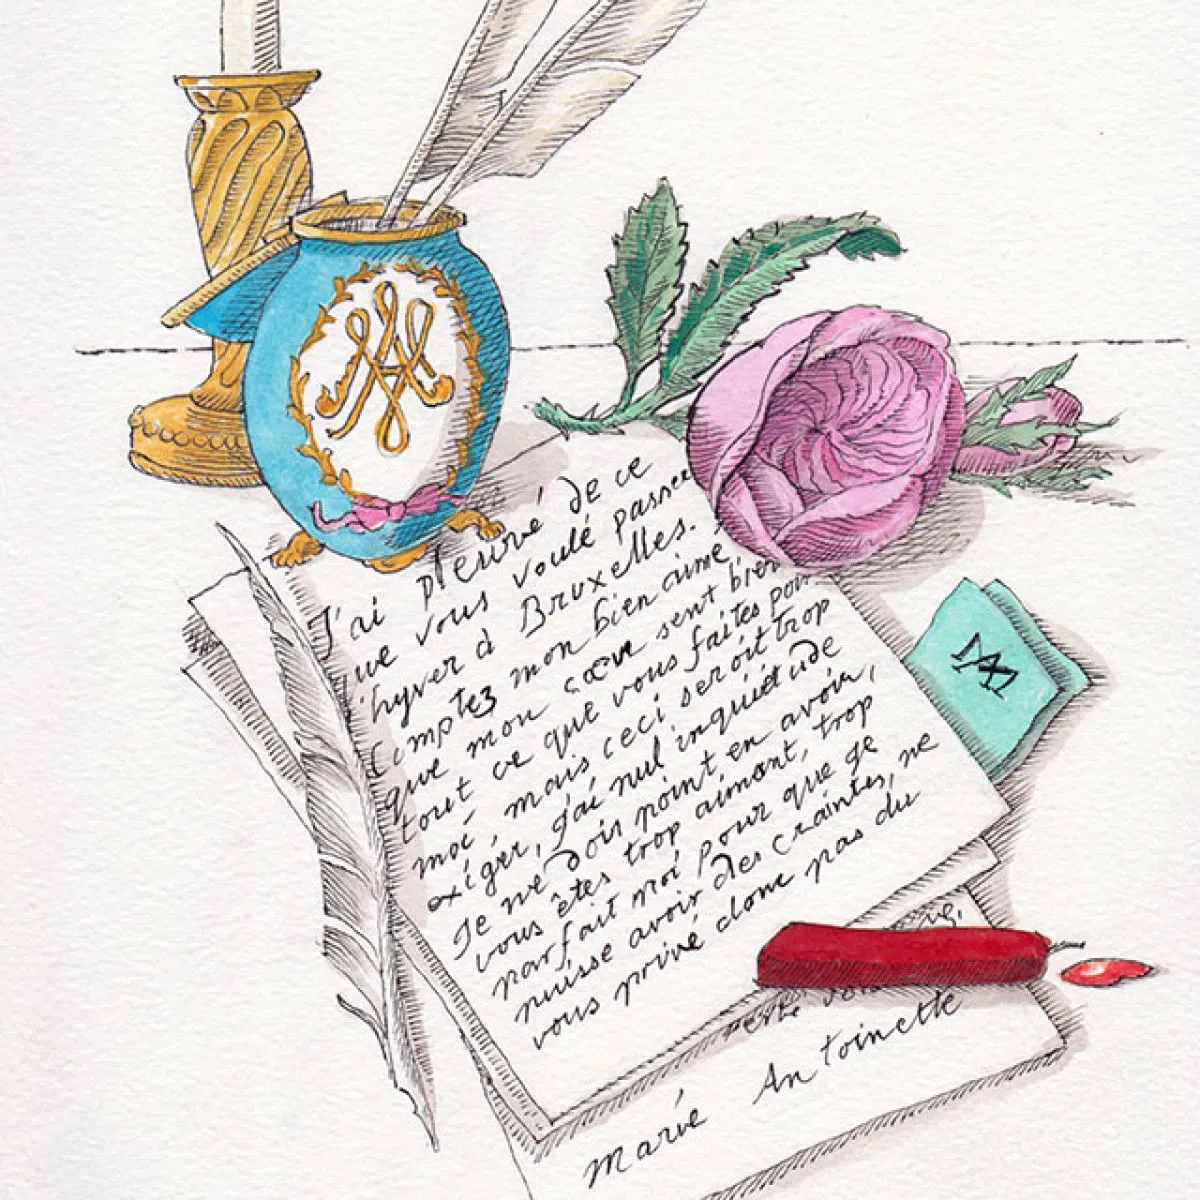 J'ai pleuré de ce
que vous voulé passer
l'hyver à Bruxelles.
Comptez mon bien aimé,
que mon cœur sent bien
tout ce que vous faites pour
moé, mais ceci seroit trop
exigér, j'ai nul inquiétude
Je ne dois point en avoir,
vous êtes trop aimant, trop
parfait moi pour que je
puisse avoir des craintes, ne
vous privé donc pas du
Marié Antoinette
MA
MA